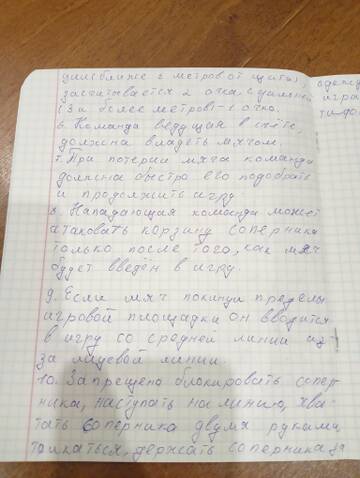 (или ближе 6 метров от щита),
засчитывается 2 очка, с дальней
(3а более метров) - очка.
6. Команда ведущая в счёте,
должна владеть мячом.
7. При потери мяча команда
должна быстро его подобрать
и продолжить игру
8. Нападающая команда может
атаковать корзину соперника
только после того, как мяч
будет введён в игру.
9. Если мяч покинул пределы
игровой площадки он вводится
в игру со средней линии из-
за лицевой линии
10. Запрещено блокировать сопер-
ника, наступать на линию, хва-
тать соперника двумя руками,
толкаться, держать соперника за
одежду
игра